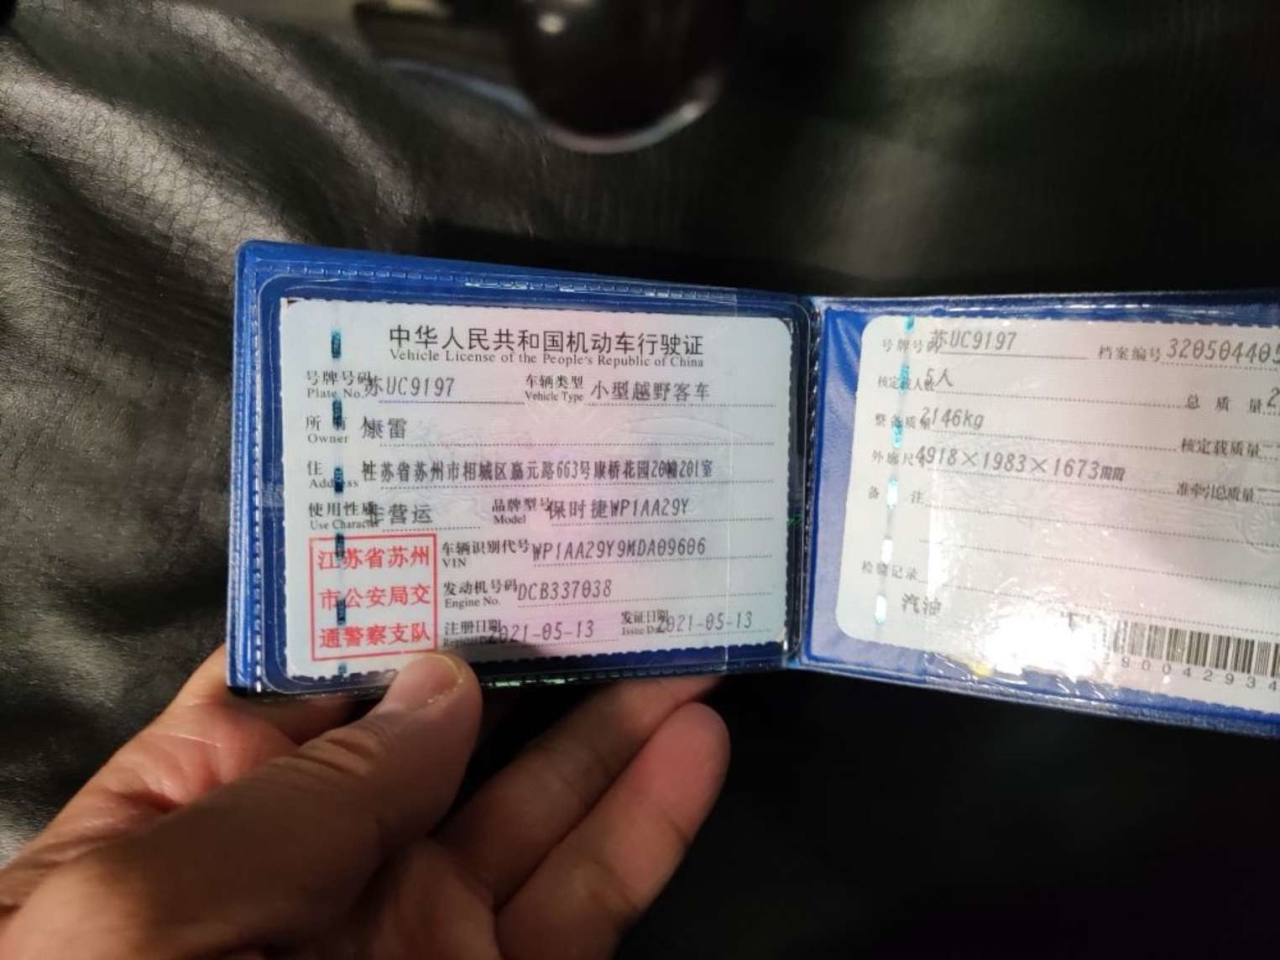 中华人民共和国机动车行驶证
Vehicle License of the People's Republic of China
号牌号码 苏UC9197 车辆类型 小型越野客车
Plate No. Vehicle Type
所有人 康雷
Owner
住址 江苏省苏州市相城区嘉元路663号康桥花园20幢201室
Address
使用性质 非营运 品牌型号 保时捷WP1AA29Y
Use Character Model
江苏省苏州
市公安局交
通警察支队
车辆识别代号 WP1AA29Y9MDA09606
VIN
发动机号码 DCB337038
Engine No.
注册日期 2021-05-13 发证日期 2021-05-13
Issue Date
号牌号码 苏UC9197 档案编号 320504405
核定载人数 5人 总质量 2
整备质量 2146kg 核定载质量
外廓尺寸 4918×1983×1673mm 准牵引总质量
备注
检验记录
汽油
90042934